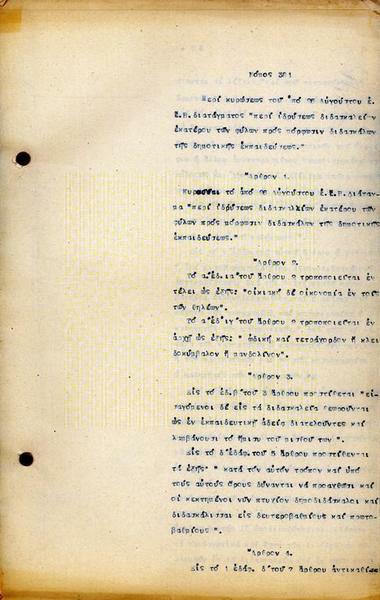 Νόμος 381
Περί κυρώσεως τού ἀπό 28 Αὐγούστου ἐ.
Ἐ.Η. διατάγματος "περί ἱδρύσεως διδασκαλείων
ἑκατέρου τῶν φύλων πρός μόρφωσιν διδασκάλων
τῆς δημοτικῆς ἐκπαιδεύσεως."
"Άρθρον 1.
Κυροῦται τό ἀπό 28 Αὐγούστου ἐ.Ἐ.Η. διάταγ-
μα "περί ἱδρύσεως διδασκαλείων ἑκατέρου τῶν
φύλων πρός μόρφωσιν διδασκάλων τῆς δημοτικῆς
ἐκπαιδεύσεως."
"Άρθρον 2.
Τό α.ἐδ. ια τοῦ ἄρθρου 2 τροποποιεῖται ἐν
τέλει ὡς ἑξῆς: "οἰκιακή δέ οἰκονομία ἐν τοῖς
τῶν θηλέων".
Τό α'ἐδ'ιγ'τοῦ ἄρθρου 2 τροποποιεῖται ἐν
ἀρχῇ ὡς ἑξῆς: " ᾠδική καί τετράχορδον ἤ κλει
δοκύμβαλον ἤ μανδολῖνον".
"Άρθρον 3.
Εἰς τό ἐδ.β'τοῦ 3 ἄρθρου προστίθεται "εἰ-
σαγόμενοι δέ εἰς τά διδασκαλεῖα θεωροῦνται
ὡς ἐν ἐκπαιδευτικῇ ἀδείᾳ διατελοῦντες καί
λαμβάνουσι τό ἥμισυ τοῦ μισθοῦ των ".
Εἰς τό δ'ἐδάφ. τοῦ 5 ἄρθρου προστίθενται
τά ἑξῆς· " κατά τόν αὐτόν τρόπον καί ὑπό
τούς αὐτούς ὅρους δύνανται νά προαχθῶσι καί
οἱ κεκτημένοι νῦν πτυχίον δημοδιδάσκαλοι καί
διδασκάλισσαι εἰς δευτεροβαθμίους καί πρωτο-
βαθμίους ".
"Άρθρον 4.
Εἰς τό 1 ἐδάφ. δ'τοῦ 7 ἄρθρου ἀντικαθίσ